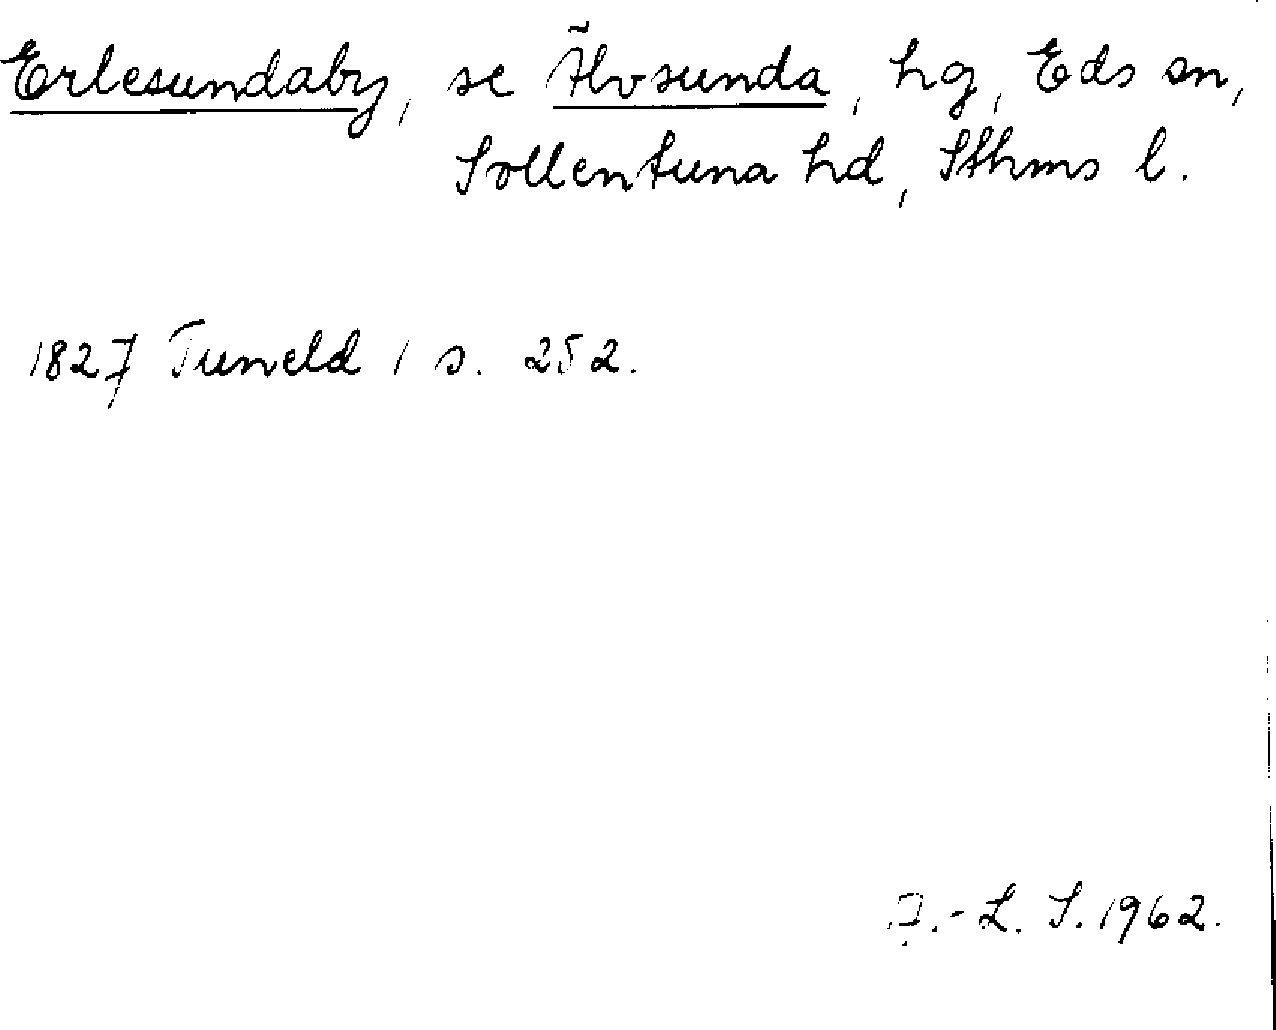 Erlesundaby, se Älvsunda, hg, Eds sn,
Sollentuna hd, Sthms l.
1827 Tuneld 1 s. 252.
A.-L. S. 1962.